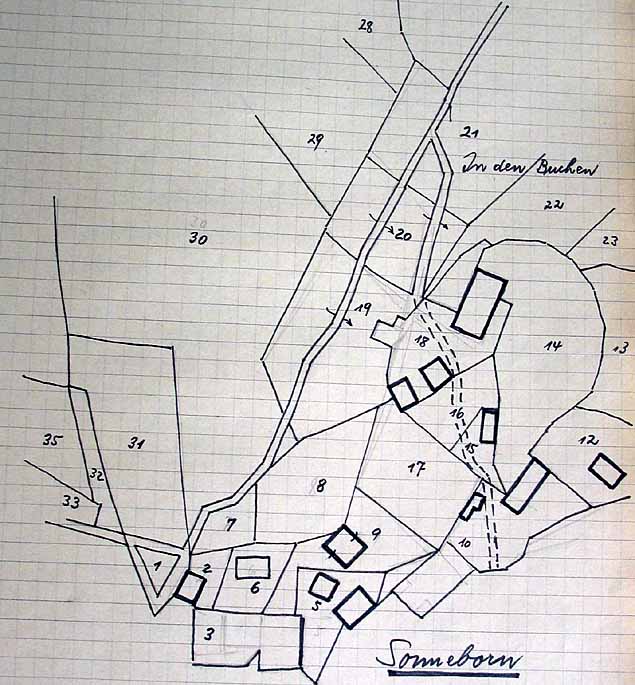 28
21
29
In den Buchen
22
30
30
20
23
19
18
14
13
31
16
12
35
15
32
17
8
33
7
9
10
1
2
6
5
3
Sonneborn